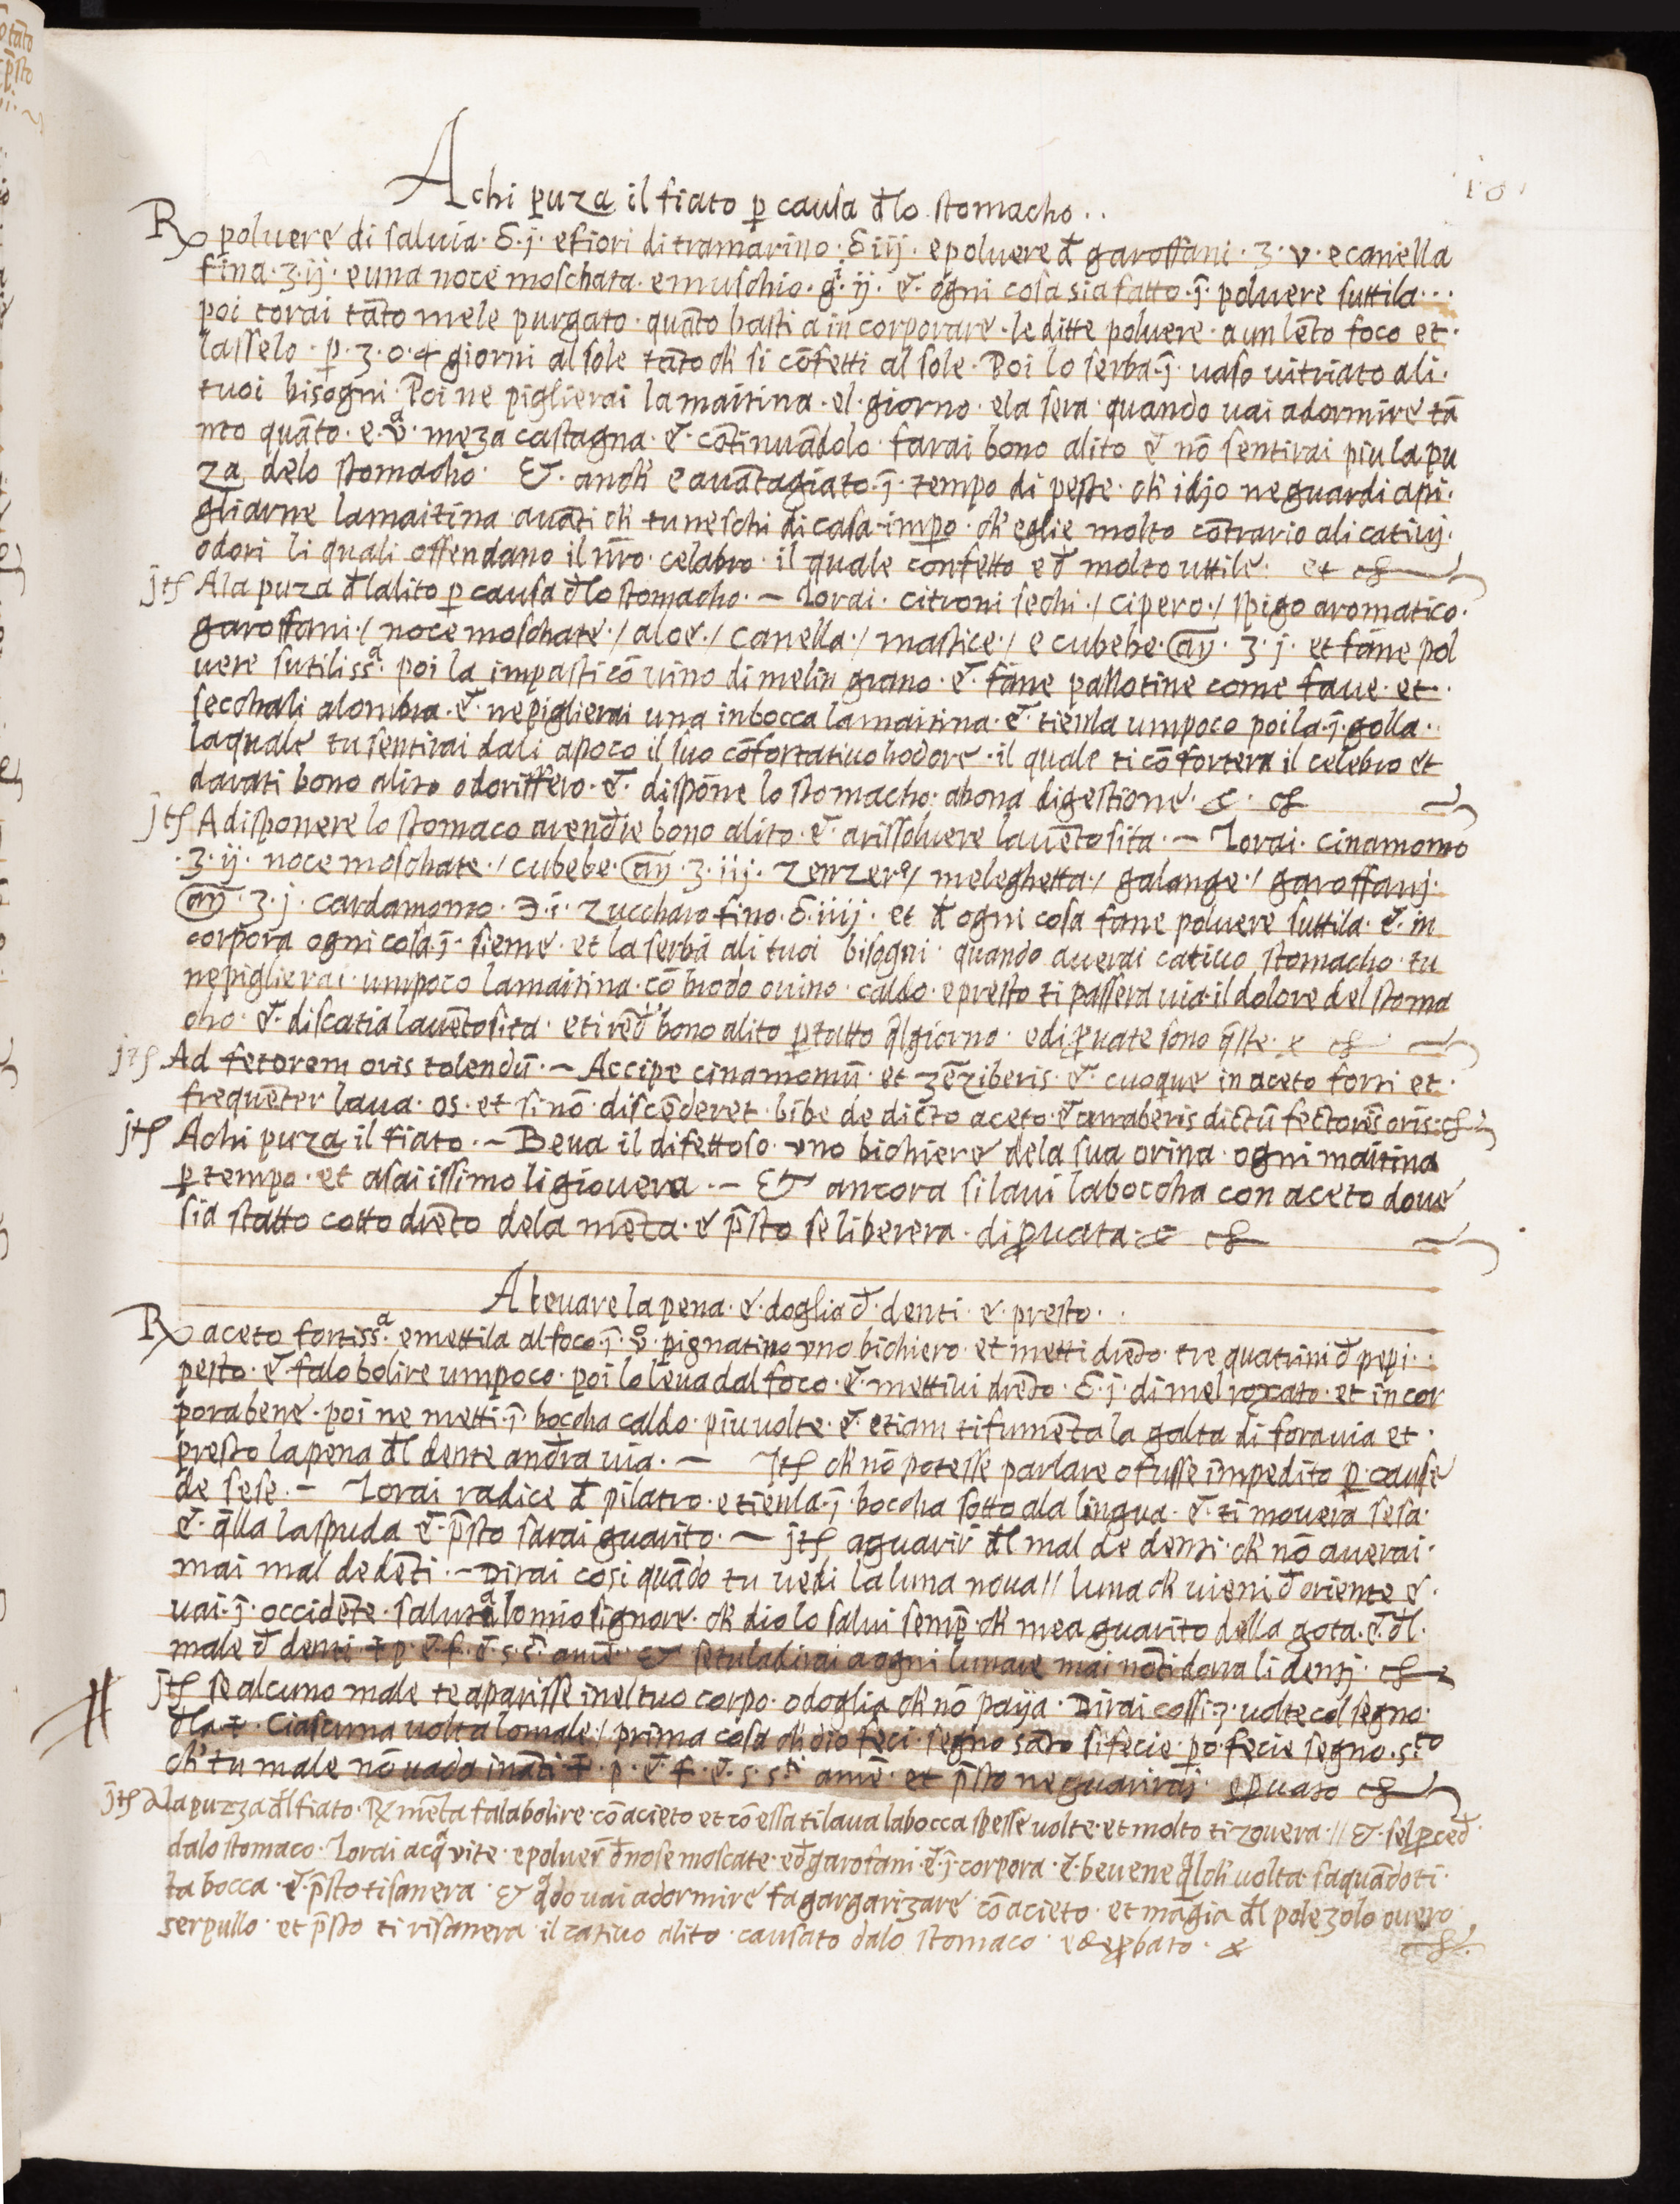 A chi puza il fiato p̱ causa đlo stomacho..
℞ poluere di saluia · ℥ · j · e fiori di tramarino · ℥ iij · e poluere đ garoffani · ʒ · v · e canella
fina · ʒ · ij · e una noce moschata · e muschio · gͥ · ij · & · ogni cosa sia fatto · ī · poluere suttila · · ·
poi torai tāto mele purgato · quāto basti a in corporare · le ditte poluere · a un lēto foco et ·
lasselo · p̱ · 3 · o · 4 giorni al sole tāto ch' si cōfetti al sole · Poi lo serba · ī · uaso uitriato ali ·
tuoi bisogni · Poi ne piglierai la maitina · el · giorno · e la sera · quando uai a dormire tā
nto quāto · e · vᵃ · meza castagna · & · cōtinuādolo · farai bono alito & nō sentirai piu la pu
za delo stomacho · Et · anch' e auātagiato · ī · tempo di peste · ch' idjo ne guardi a pi ·
gliarne la maitina · auāti ch' tu ne schi di casa · impo · ch' eglie molto cōtrario ali catiuj ·
odori li quali offendano il nr̄o · celabro · il quale confetto eđ molto uttile · et
jtꝭ A la puza đlalito p̱ causa đlo stomacho · – Torai · citroni sechi · / cipero · / spigo aromatico ·
garoffani · / noce moschate · / aloe · / canella · / mastice · / e cubebe · āŋ · ʒ · j · et fāne pol
uere sutilissᵃ · poi la impasti cō uino di melin grano · & · fāne pallotine come faue · et · ·
secchali a lombra · & · ne piglierai una in bocca la maitina · & · tienla um poco poi la · ī · golla · ·
la quale tu sentirai da li a poco il suo cōfortatiuo hodore · il quale ti cōfortera il celebro et
darati bono alito odoriffero · & · dispōne lo stomacho · a bona digestione · &
jtꝭ A disponere lo stomaco a renđre bono alito · & · a rissoluere la uētosita · – Torai · cinamomo
· ʒ · ij · noce moschate · / cubebe · āŋ · ʒ · iij · zenzerᵒ / meleghetta · / galange · / garoffanj ·
āŋ · ʒ · j · cardamomo · ℈ · i · zuccharo fino · ℥ · iiij · et đ ogni cosa fane poluere suttila · & · in
corpora ogni cosa · ī · sieme · et la serba ali tuoi bisogni · quando auerai catiuo stomacho · tu
ne piglierai · um poco la maitina · cō brodo ouino · caldo · e presto ti passera uia · il dolore del stoma
cho · & · discatia la uētosita · e ti rēđ bono alito p̱ tutto q̄l giorno · e di ꝓuate sono q̄ste · &
jtꝭ Ad fetorem oris tolendū · – Accipe cinamomū · et zēziberis · & · cuoque in aceto forti et ·
frequēter laua · os · et si nō · discēderet · bibe de dicto aceto · & curaberis dictū fectoris oris
jtꝭ A chi puza il fiato · – Beua il difettoso · uno bichiere dela sua orina · ogni maitina
p̱ tempo · et asai issimo li giouera · – Et ancora si laui la boccha con aceto doue
sia statto cotto drēto dela mēta · & p̄sto se liberera · di ꝓuata · &
A leuare la pena · & · doglia đ · denti · & · presto · ·
℞ aceto fortissᵃ · e mettila al foco · ī · vᵒ · pignatino uno bichiero · et metti drēdo · tre quatrini đ pepi · ·
pesto · & · falo bolire um poco · poi lo leua dal foco · & · mettiui drēdo · ℥ · j · di mel roxato · et in cor
pora bene · poi ne metti · ī · boccha caldo · piu uolte · & · etiam ti fumēta la galta di fora uia et ·
presto la pena đl dente andra uia · – Jtꝭ ch' nō potesse parlare o fusse impedito p̱ cause
de sese · – Torai radice đ pilatro · e tienla · ī · boccha sotto a la lingua · & · ti mouera sesa ·
& · q̄lla la spuda & · p̄sto sarai guarito · – jtꝭ a guarir' đl mal de denti · ch' nō auerai ·
mai mal de dēti · – Dirai cosi quādo tu uedi la luna noua // luna ch' uieni đ oriente & ·
uai · ī · occidēte · saluta lo mio signore · ch' dio lo salui semp̄ · ch' mea guarito della gota · & · đl ·
male đ denti · ✝ p · & · f · & · s · s · amē · Et se tu la dirai a ogni lunare mai nō ti dorra li dentj ·
jtꝭ se alcuno male te aparisse in el tuo corpo · o doglia ch' nō paija · Dirai cossi · 3 · uolte col segno ·
đla ✝ · Ciascuna uolta lo male · / prima cosa ch' dio feci · segno sāto si fecie · po fecie segno · s.ᵗᵒ
ch' tu male nō uada inātj ✝ · p · & · f · & · s · s.ᵗⁱ amē · et p̄sto ne guarirāj · e ꝓuato
jtꝭ A la puzza đl fiato · ℞ mēta falabolire · cō acieto et cō essa ti laua la bocca spesse uolte · et molto ti zouera · // & · sel ꝓceđ
dalo stomaco · Torai acqᵃ vite · e poluer' đ nose moscate · eđ garofani · & · ī · corpora · & · beuene q̄lch' uolta · saquādoti ·
la bocca · & · p̄sto ti sanera · & qᵃdo uai a dormire fa gargarizare · cō acieto · et māgia đl polezolo ouero
serpullo · et p̄sto ti risanera il catiuo alito · causato dalo stomaco · ed e ꝓbato · &